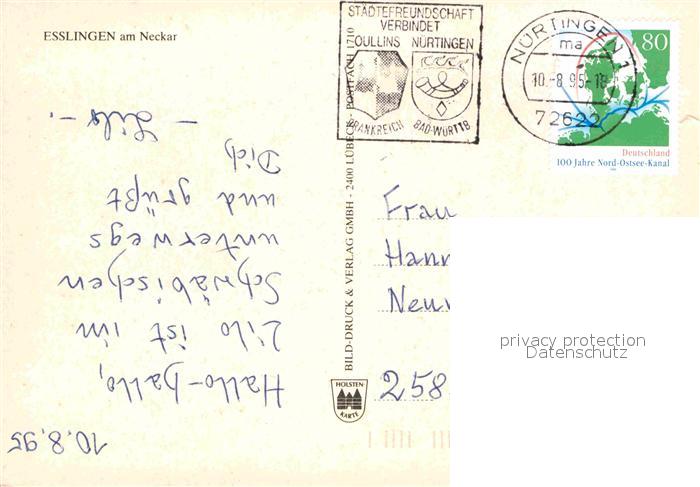 ESSLINGEN am Neckar
10.8.95
Hallo-hallo,
Lilo ist im
Schwäbischen
unterwegs
und grüßt
Dich
- Lilo -.
BILD-DRUCK & VERLAG GMBH - 2400 LÜBECK - POSTFACH 1710
HOLSTEN
KARTE
STÄDTEFREUNDSCHAFT
VERBINDET
OULLINS NÜRTINGEN
FRANKREICH BAD-WÜRTTB
NÜRTINGEN 1
ma
10.-8.95-18
72622
80
Deutschland
100 Jahre Nord-Ostsee-Kanal
Frau
Hann
Neu
258
privacy protection
Datenschutz